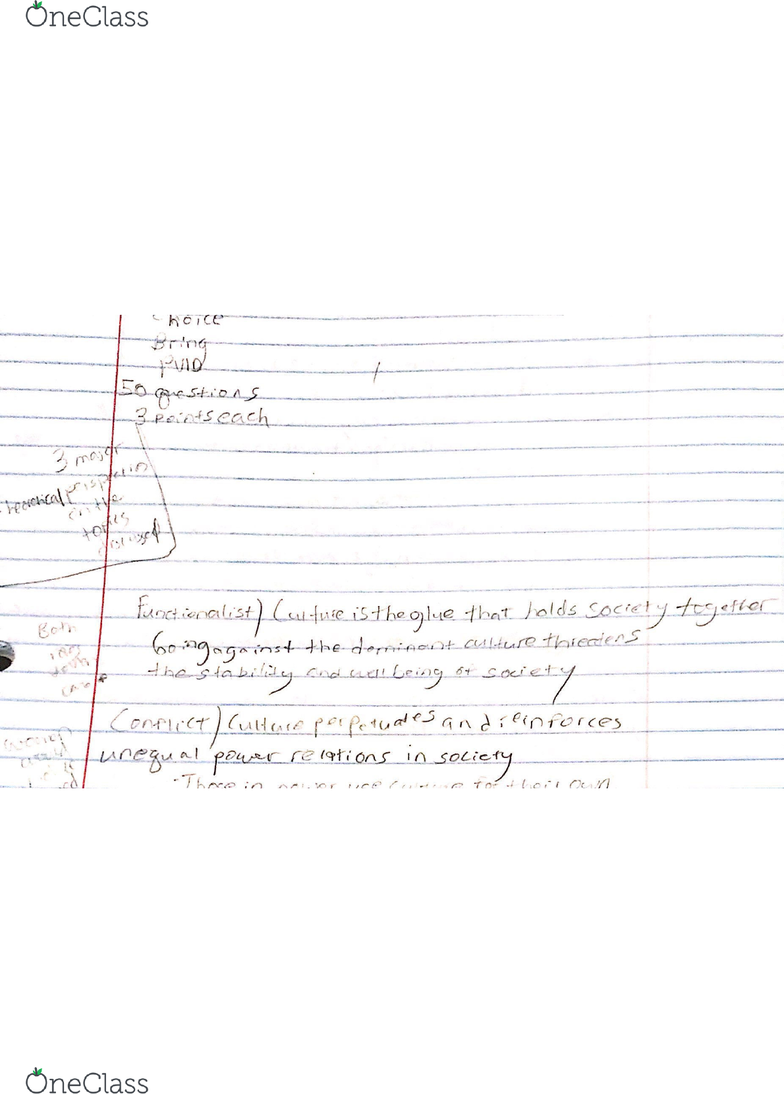 OneClass
choice
Bring
50 questions
3 points each
3 major
theoretical
topics
Functionalist) Culture is the glue that holds society together
Going against the dominant culture threatens
the stability and well being of society
Both
Conflict) Culture perpetuates and reinforces
unequal power relations in society
Those in power use culture for their own
OneClass